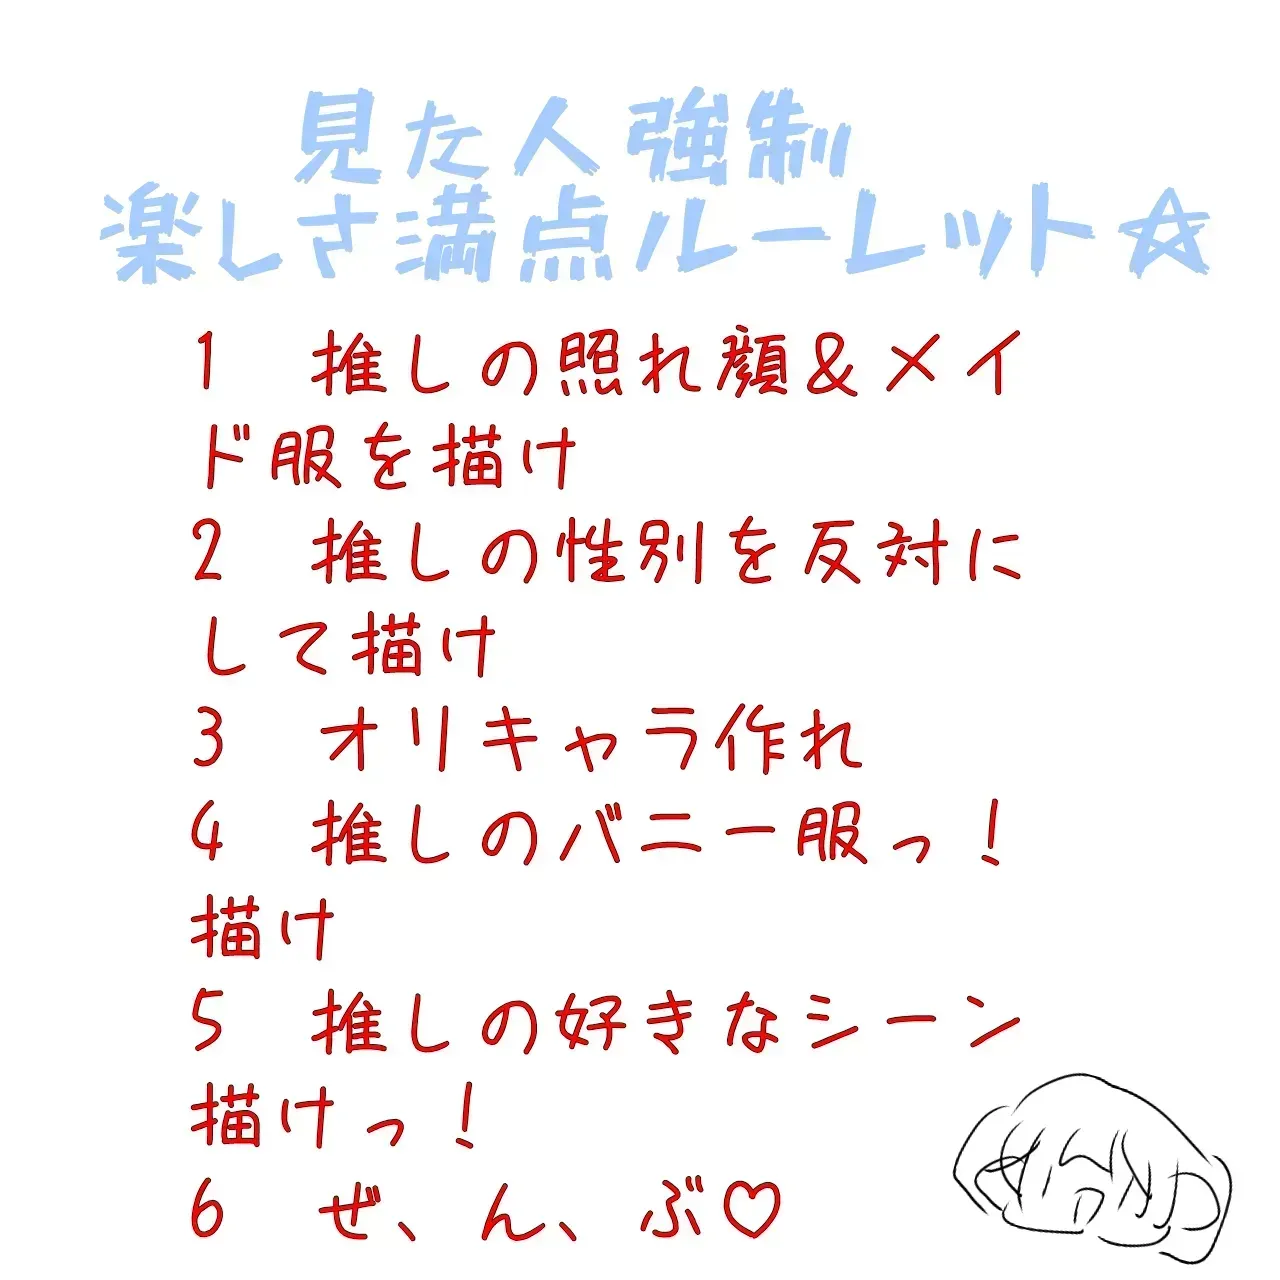 見た人強制
楽しさ満点ルーレット☆
1　推しの照れ顔＆メイ
ド服を描け
2　推しの性別を反対に
して描け
3　オリキャラ作れ
4　推しのバニー服っ！
描け
5　推しの好きなシーン
描けっ！
6　ぜ、ん、ぶ♡